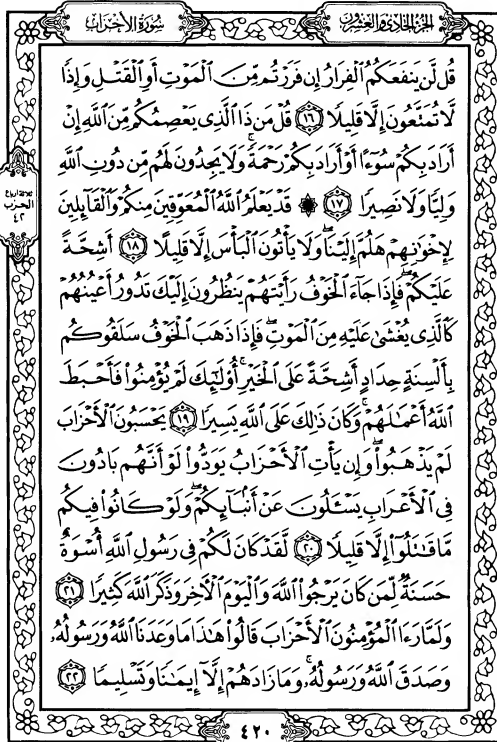 الجزء الحادي والعشرون
سورة الأحزاب
قُل لَّن يَنفَعَكُمُ ٱلْفِرَارُ إِن فَرَرْتُم مِّنَ ٱلْمَوْتِ أَوِ ٱلْقَتْلِ وَإِذًا
لَّا تُمَتَّعُونَ إِلَّا قَلِيلًا ١٦ قُلْ مَن ذَا ٱلَّذِى يَعْصِمُكُم مِّنَ ٱللَّهِ إِنْ
أَرَادَ بِكُمْ سُوٓءًا أَوْ أَرَادَ بِكُمْ رَحْمَةً ۚ وَلَا يَجِدُونَ لَهُم مِّن دُونِ ٱللَّهِ
وَلِيًّا وَلَا نَصِيرًا ١٧ ۞ قَدْ يَعْلَمُ ٱللَّهُ ٱلْمُعَوِّقِينَ مِنكُمْ وَٱلْقَآئِلِينَ
لِإِخْوَٰنِهِمْ هَلُمَّ إِلَيْنَا ۖ وَلَا يَأْتُونَ ٱلْبَأْسَ إِلَّا قَلِيلًا ١٨ أَشِحَّةً
عَلَيْكُمْ ۖ فَإِذَا جَآءَ ٱلْخَوْفُ رَأَيْتَهُمْ يَنظُرُونَ إِلَيْكَ تَدُورُ أَعْيُنُهُمْ
كَٱلَّذِى يُغْشَىٰ عَلَيْهِ مِنَ ٱلْمَوْتِ ۖ فَإِذَا ذَهَبَ ٱلْخَوْفُ سَلَقُوكُم
بِأَلْسِنَةٍ حِدَادٍ أَشِحَّةً عَلَى ٱلْخَيْرِ ۚ أُو۟لَٰٓئِكَ لَمْ يُؤْمِنُوا۟ فَأَحْبَطَ
ٱللَّهُ أَعْمَٰلَهُمْ ۚ وَكَانَ ذَٰلِكَ عَلَى ٱللَّهِ يَسِيرًا ١٩ يَحْسَبُونَ ٱلْأَحْزَابَ
لَمْ يَذْهَبُوا۟ ۖ وَإِن يَأْتِ ٱلْأَحْزَابُ يَوَدُّوا۟ لَوْ أَنَّهُم بَادُونَ
فِى ٱلْأَعْرَابِ يَسْـَٔلُونَ عَنْ أَنۢبَآئِكُمْ ۖ وَلَوْ كَانُوا۟ فِيكُم
مَّا قَٰتَلُوٓا۟ إِلَّا قَلِيلًا ٢٠ لَّقَدْ كَانَ لَكُمْ فِى رَسُولِ ٱللَّهِ أُسْوَةٌ
حَسَنَةٌ لِّمَن كَانَ يَرْجُوا۟ ٱللَّهَ وَٱلْيَوْمَ ٱلْءَاخِرَ وَذَكَرَ ٱللَّهَ كَثِيرًا ٢١
وَلَمَّا رَءَا ٱلْمُؤْمِنُونَ ٱلْأَحْزَابَ قَالُوا۟ هَٰذَا مَا وَعَدَنَا ٱللَّهُ وَرَسُولُهُۥ
وَصَدَقَ ٱللَّهُ وَرَسُولُهُۥ ۚ وَمَا زَادَهُمْ إِلَّآ إِيمَٰنًا وَتَسْلِيمًا ٢٢
ثلاثة أرباع
الحزب
٤٢
٤٢٠